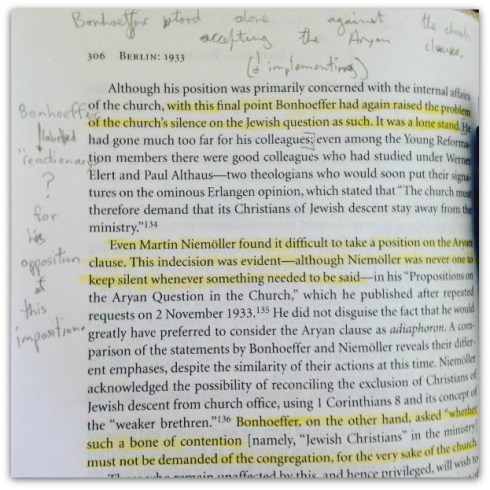 Bonhoeffer stood alone against the church
accepting the Aryan clause.
(& implementing)
306 BERLIN: 1933
Although his position was primarily concerned with the internal affairs
of the church, with this final point Bonhoeffer had again raised the problem
of the church's silence on the Jewish question as such. It was a lone stand. He
had gone much too far for his colleagues; even among the Young Reforma-
tion members there were good colleagues who had studied under Werner
Elert and Paul Althaus—two theologians who would soon put their signa-
tures on the ominous Erlangen opinion, which stated that "The church must
therefore demand that its Christians of Jewish descent stay away from the
ministry."134
Even Martin Niemöller found it difficult to take a position on the Aryan
clause. This indecision was evident—although Niemöller was never one to
keep silent whenever something needed to be said—in his "Propositions on
the Aryan Question in the Church," which he published after repeated
requests on 2 November 1933.135 He did not disguise the fact that he would
greatly have preferred to consider the Aryan clause as adiaphoron. A com-
parison of the statements by Bonhoeffer and Niemöller reveals their differ-
ent emphases, despite the similarity of their actions at this time. Niemöller
acknowledged the possibility of reconciling the exclusion of Christians of
Jewish descent from church office, using 1 Corinthians 8 and its concept of
the "weaker brethren."136 Bonhoeffer, on the other hand, asked "whether
such a bone of contention [namely, "Jewish Christians" in the ministry]
must not be demanded of the congregation, for the very sake of the church.
Those who remain unaffected by this, and hence privileged, will wish to
Bonhoeffer
labeled
"reactionary"
?
for
his
opposition
at
this
imposition